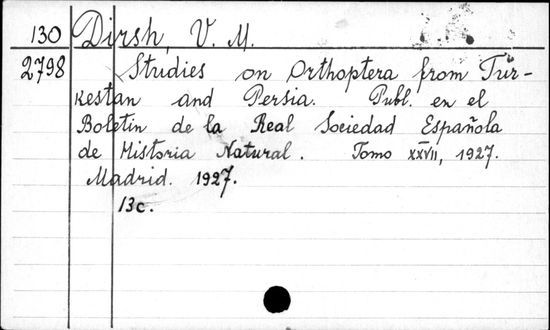 130 Dirsh, V. M.
2798 Studies on Orthoptera from Tur-
kestan and Persia. Publ. en el
Boletín de la Real Sociedad Española
de Historia Natural. Tomo XXVII, 1927.
Madrid. 1927.
13c.